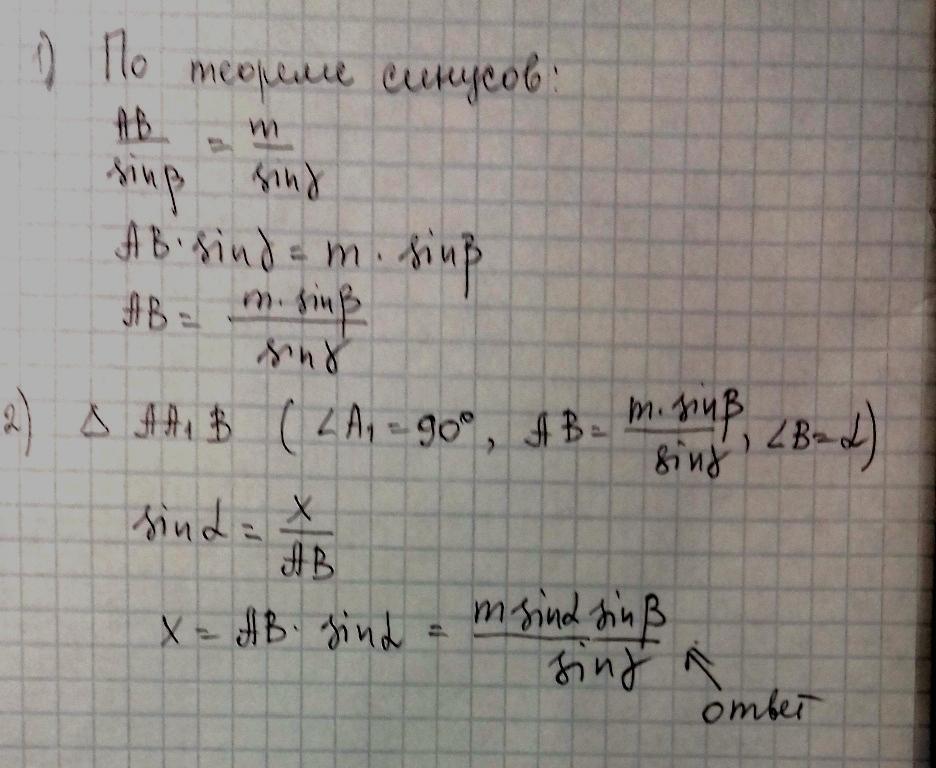 1) По теореме синусов:
AB/sinβ = m/sinγ
AB · sinγ = m · sinβ
AB = m · sinβ/sinγ
2) Δ AA₁B (∠A₁ = 90°, AB = m · sinβ/sinγ, ∠B = α)
sinα = x/AB
x = AB · sinα = m sinα sinβ/sinγ
ответ